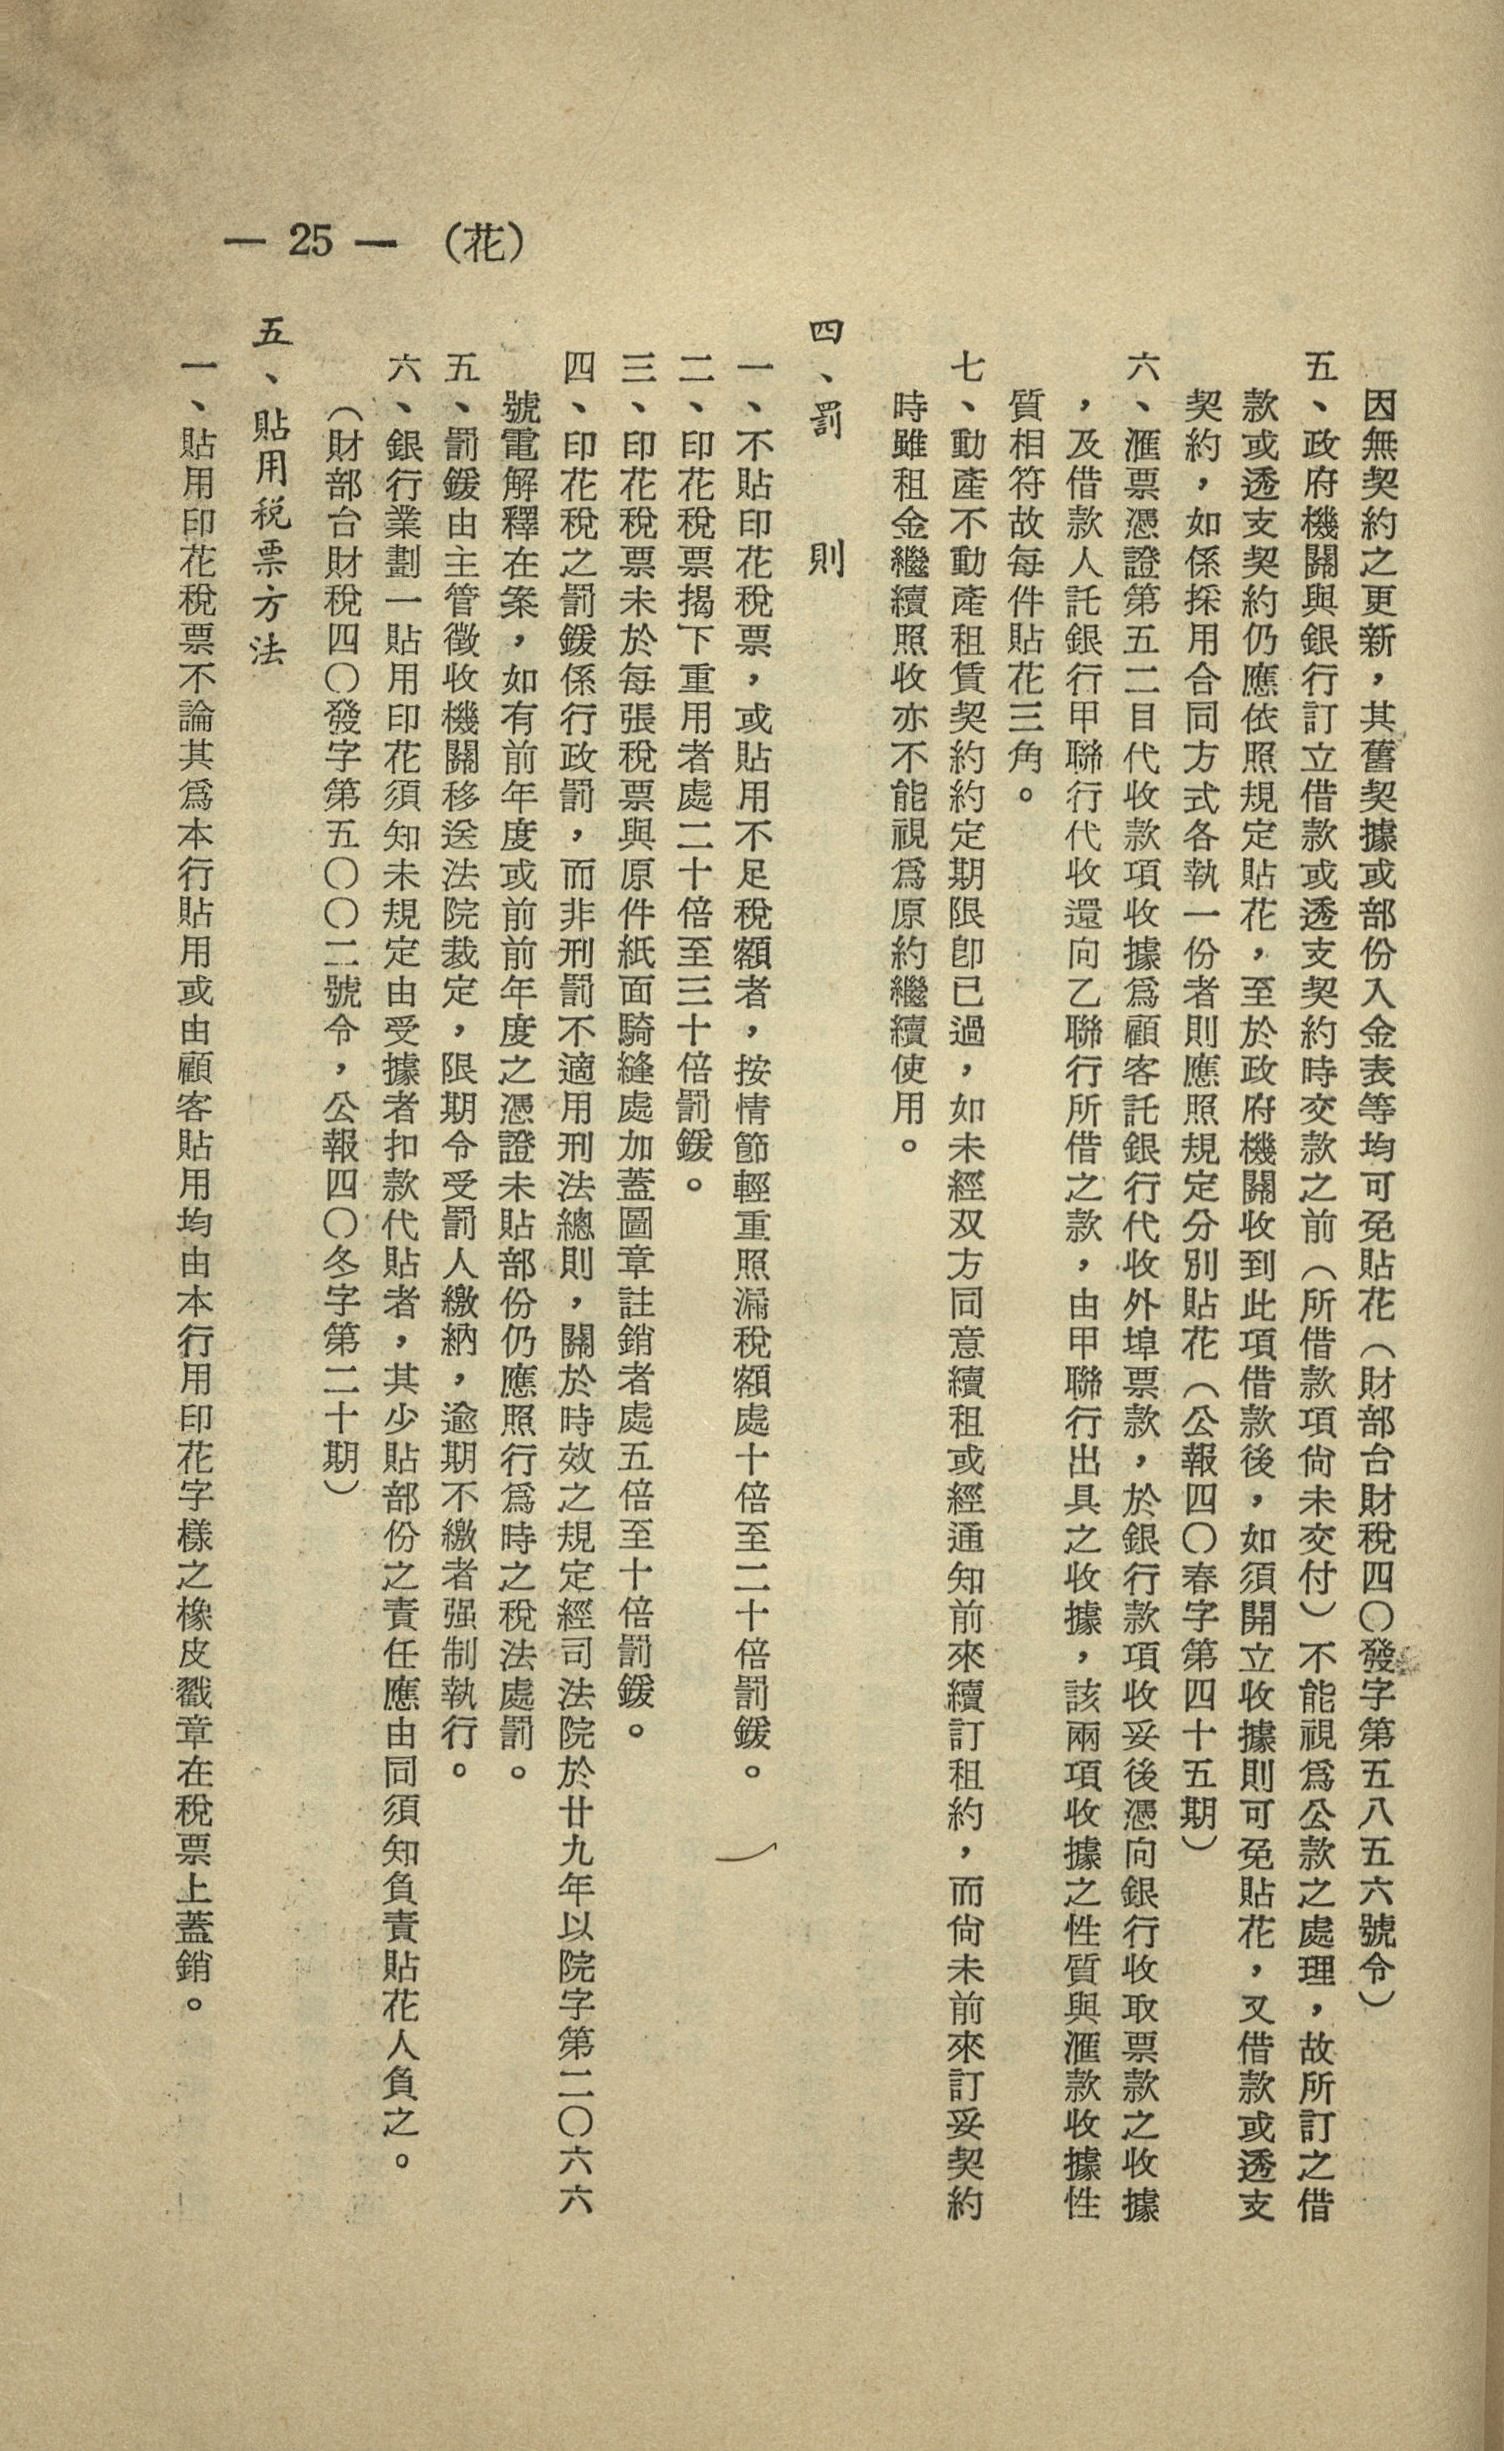 — 25 —　（花）
因無契約之更新，其舊契據或部份入金表等均可免貼花（財部台財稅四〇發字第五八五六號令）
五、政府機關與銀行訂立借款或透支契約時交款之前（所借款項尙未交付）不能視爲公款之處理，故所訂之借
款或透支契約仍應依照規定貼花，至於政府機關收到此項借款後，如須開立收據則可免貼花，又借款或透支
契約，如係採用合同方式各執一份者則應照規定分別貼花（公報四〇春字第四十五期）
六、滙票憑證第五二目代收款項收據爲顧客託銀行代收外埠票款，於銀行款項收妥後憑向銀行收取票款之收據
，及借款人託銀行甲聯行代收還向乙聯行所借之款，由甲聯行出具之收據，該兩項收據之性質與滙款收據性
質相符故每件貼花三角。
七、動產不動產租賃契約約定期限卽已過，如未經双方同意續租或經通知前來續訂租約，而尙未前來訂妥契約
時雖租金繼續照收亦不能視爲原約繼續使用。
四、罰　　則
一、不貼印花稅票，或貼用不足稅額者，按情節輕重照漏稅額處十倍至二十倍罰鍰。
二、印花稅票揭下重用者處二十倍至三十倍罰鍰。
三、印花稅票未於每張稅票與原件紙面騎縫處加蓋圖章註銷者處五倍至十倍罰鍰。
四、印花稅之罰鍰係行政罰，而非刑罰不適用刑法總則，關於時效之規定經司法院於廿九年以院字第二〇六六
號電解釋在案，如有前年度或前前年度之憑證未貼部份仍應照行爲時之稅法處罰。
五、罰鍰由主管徵收機關移送法院裁定，限期令受罰人繳納，逾期不繳者强制執行。
六、銀行業劃一貼用印花須知未規定由受據者扣款代貼者，其少貼部份之責任應由同須知負責貼花人負之。
（財部台財稅四〇發字第五〇〇二號令，公報四〇冬字第二十期）
五、貼用稅票方法
一、貼用印花稅票不論其爲本行貼用或由顧客貼用均由本行用印花字樣之橡皮戳章在稅票上蓋銷。